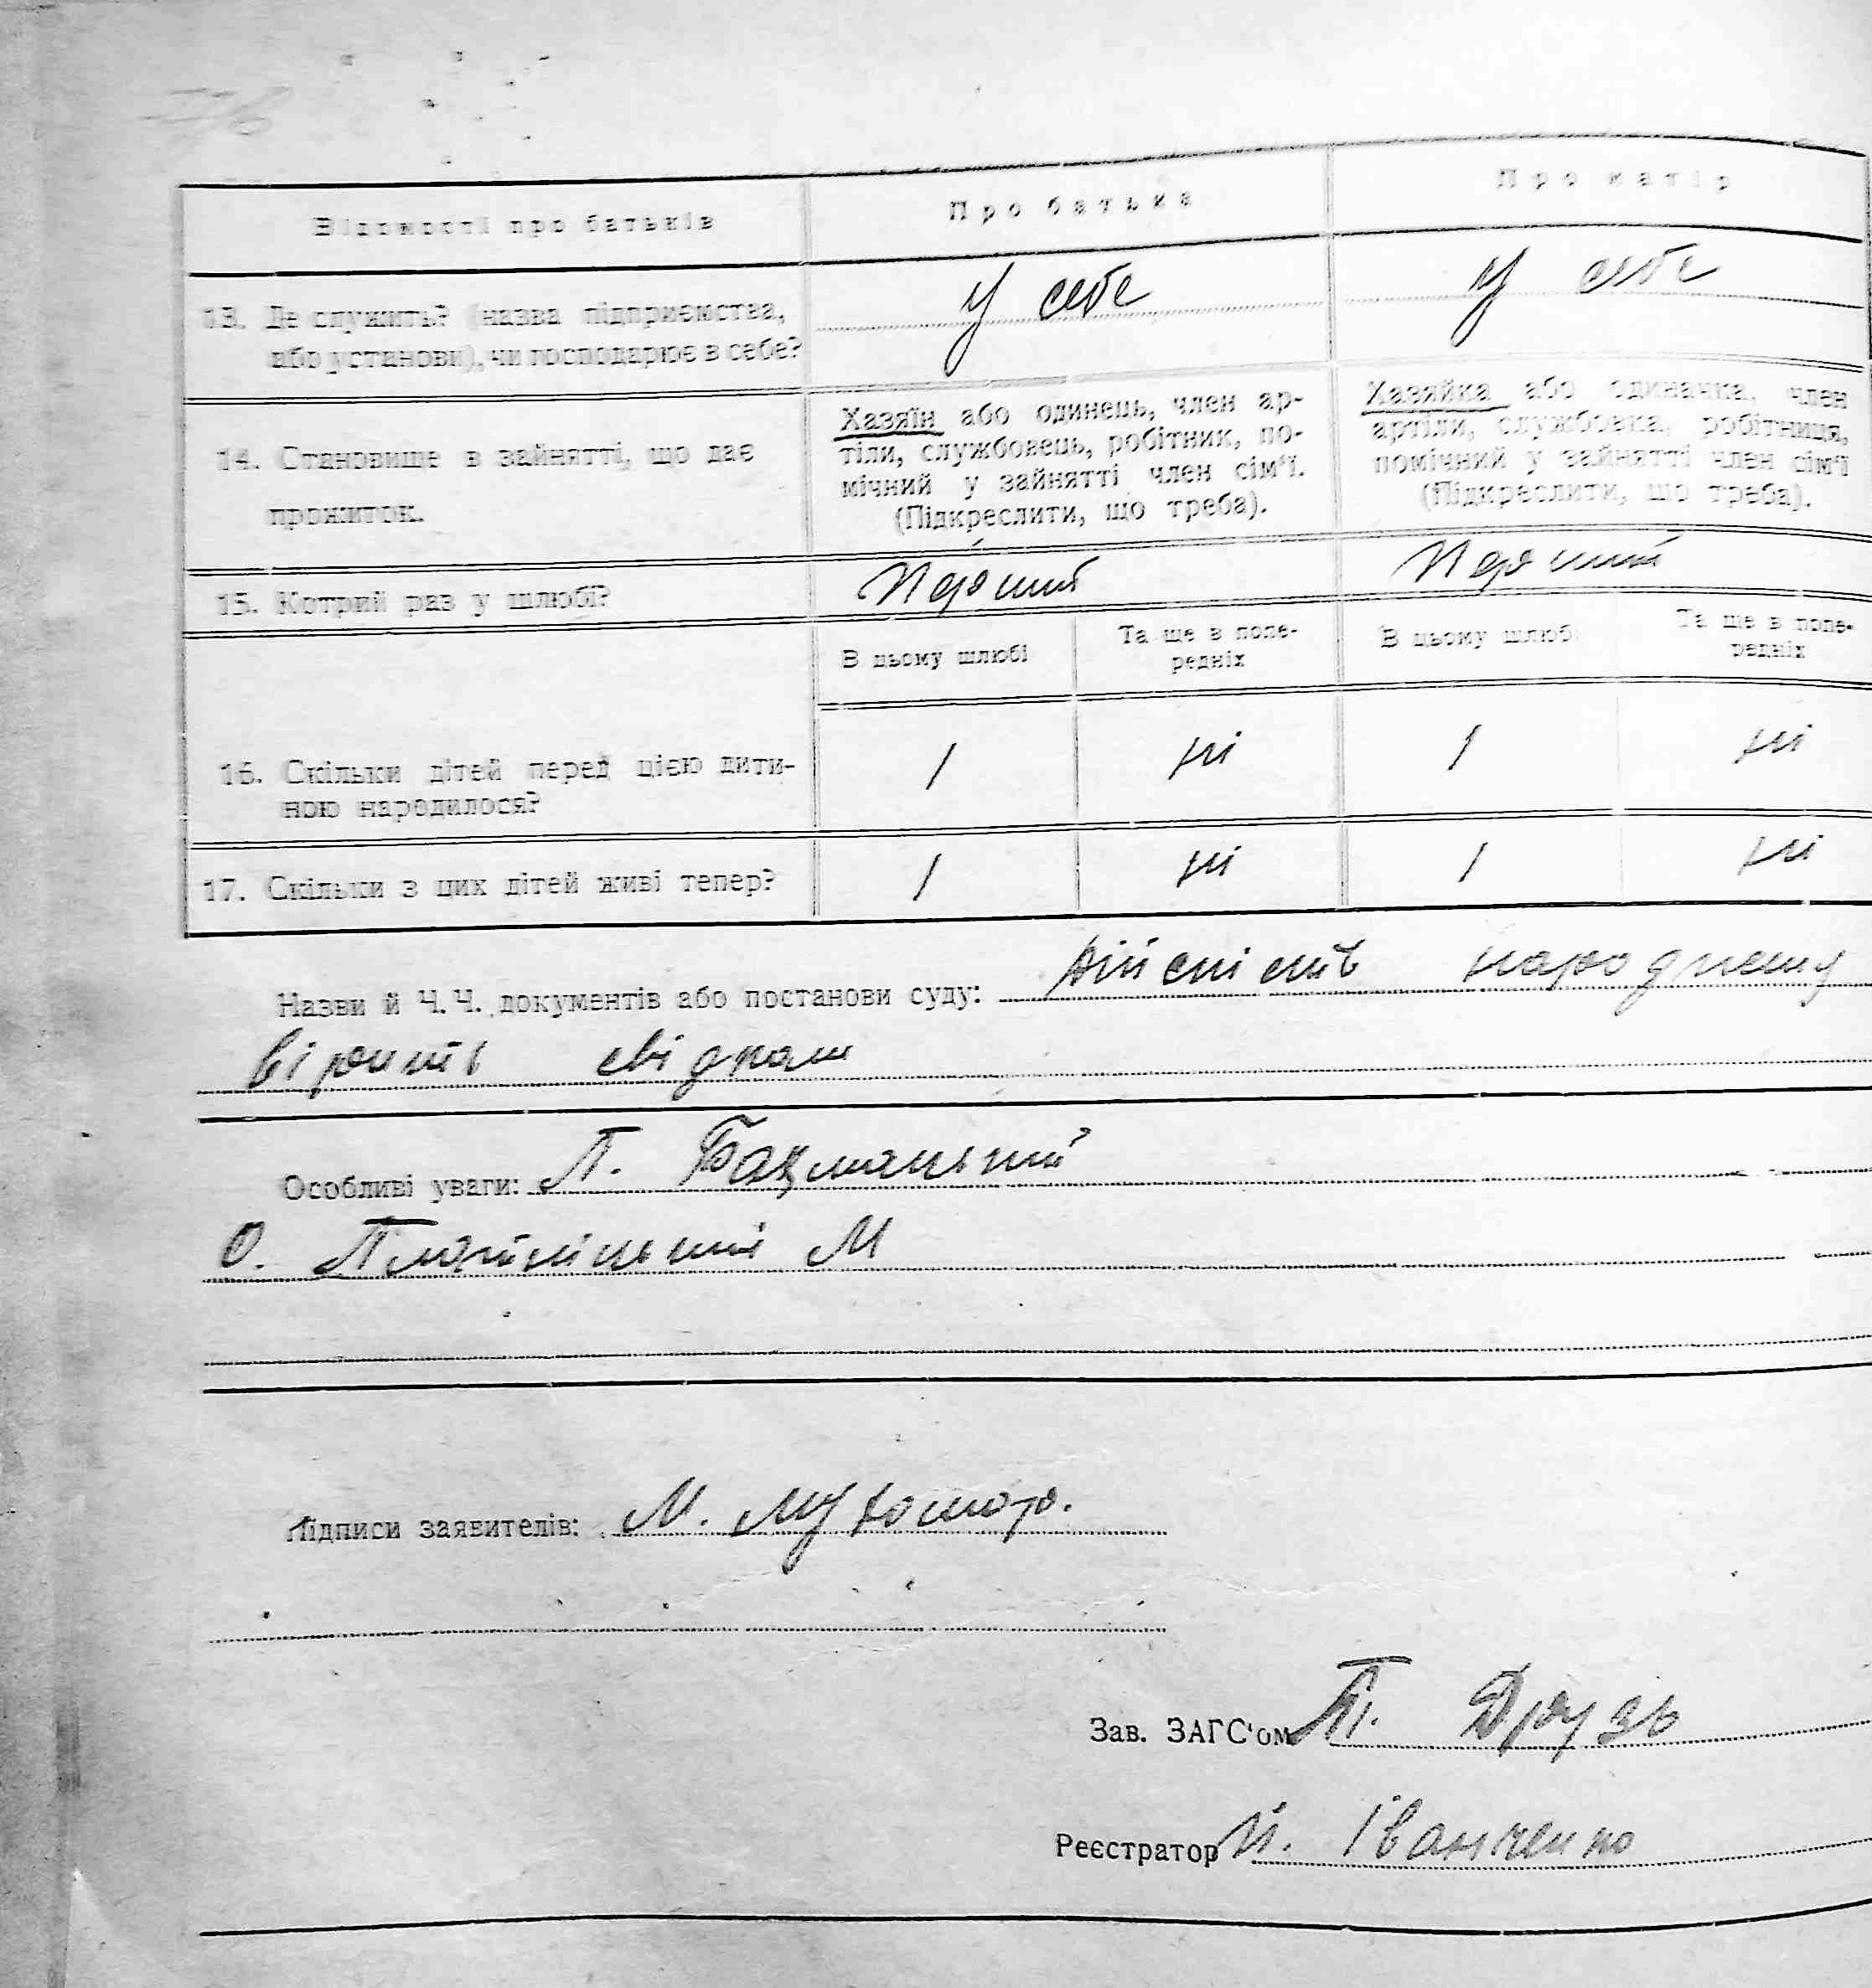 Відомості про батьків
Про батька
Про матір
13. Де служить? (назва підприємства,
або установи), чи господарює в себе?
У себе
У себе
14. Становище в зайнятті, що дає
прожиток.
Хазяїн або одинець, член ар-
тіли, службовець, робітник, по-
мічний у зайнятті член сім'ї.
(Підкреслити, що треба).
Хазяйка або одиначка, член
артіли, службовка, робітниця,
помічний у зайнятті член сім'ї
(Підкреслити, що треба).
15. Котрий раз у шлюбі?
Перший
Перший
В цьому шлюбі
Та ще в попе-
редніх
В цьому шлюб
Та ще в попе-
редніх
16. Скільки дітей перед цією дити-
ною народилося?
1
ні
1
ні
17. Скільки з цих дітей живі тепер?
1
ні
1
ні
Назви й Ч. Ч. документів або постанови суду:
свідками
Особливі уваги: П.
О. М
Підписи заявителів: М.
Зав. ЗАГС'ом П. Друзь
Реєстратор Й. Іванченко